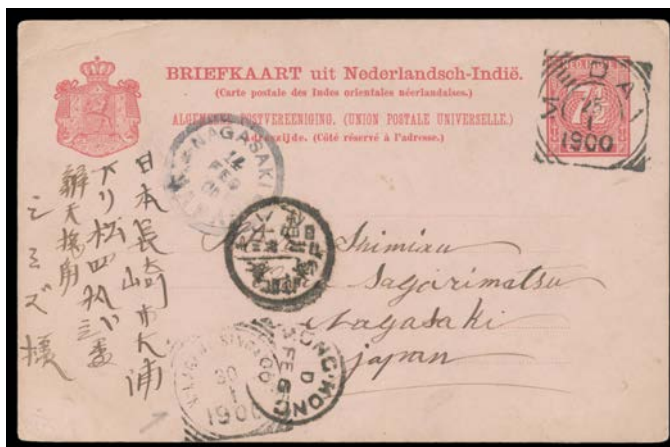 BRIEFKAART uit Nederlandsch-Indië.
(Carte postale des Indes orientales néerlandaises.)
ALGEMEENE POSTVEREENIGING. (UNION POSTALE UNIVERSELLE.)
Adreszijde. (Côté réservé à l'adresse.)
7½
25
1
1900
NAGASAKI
14
FEB
Shimizu
Sagarimatsu
Nagasaki
Japan
日本長崎市大浦
下リ松四拾
シミズ様
HONG KONG
D
FE 6
30
1